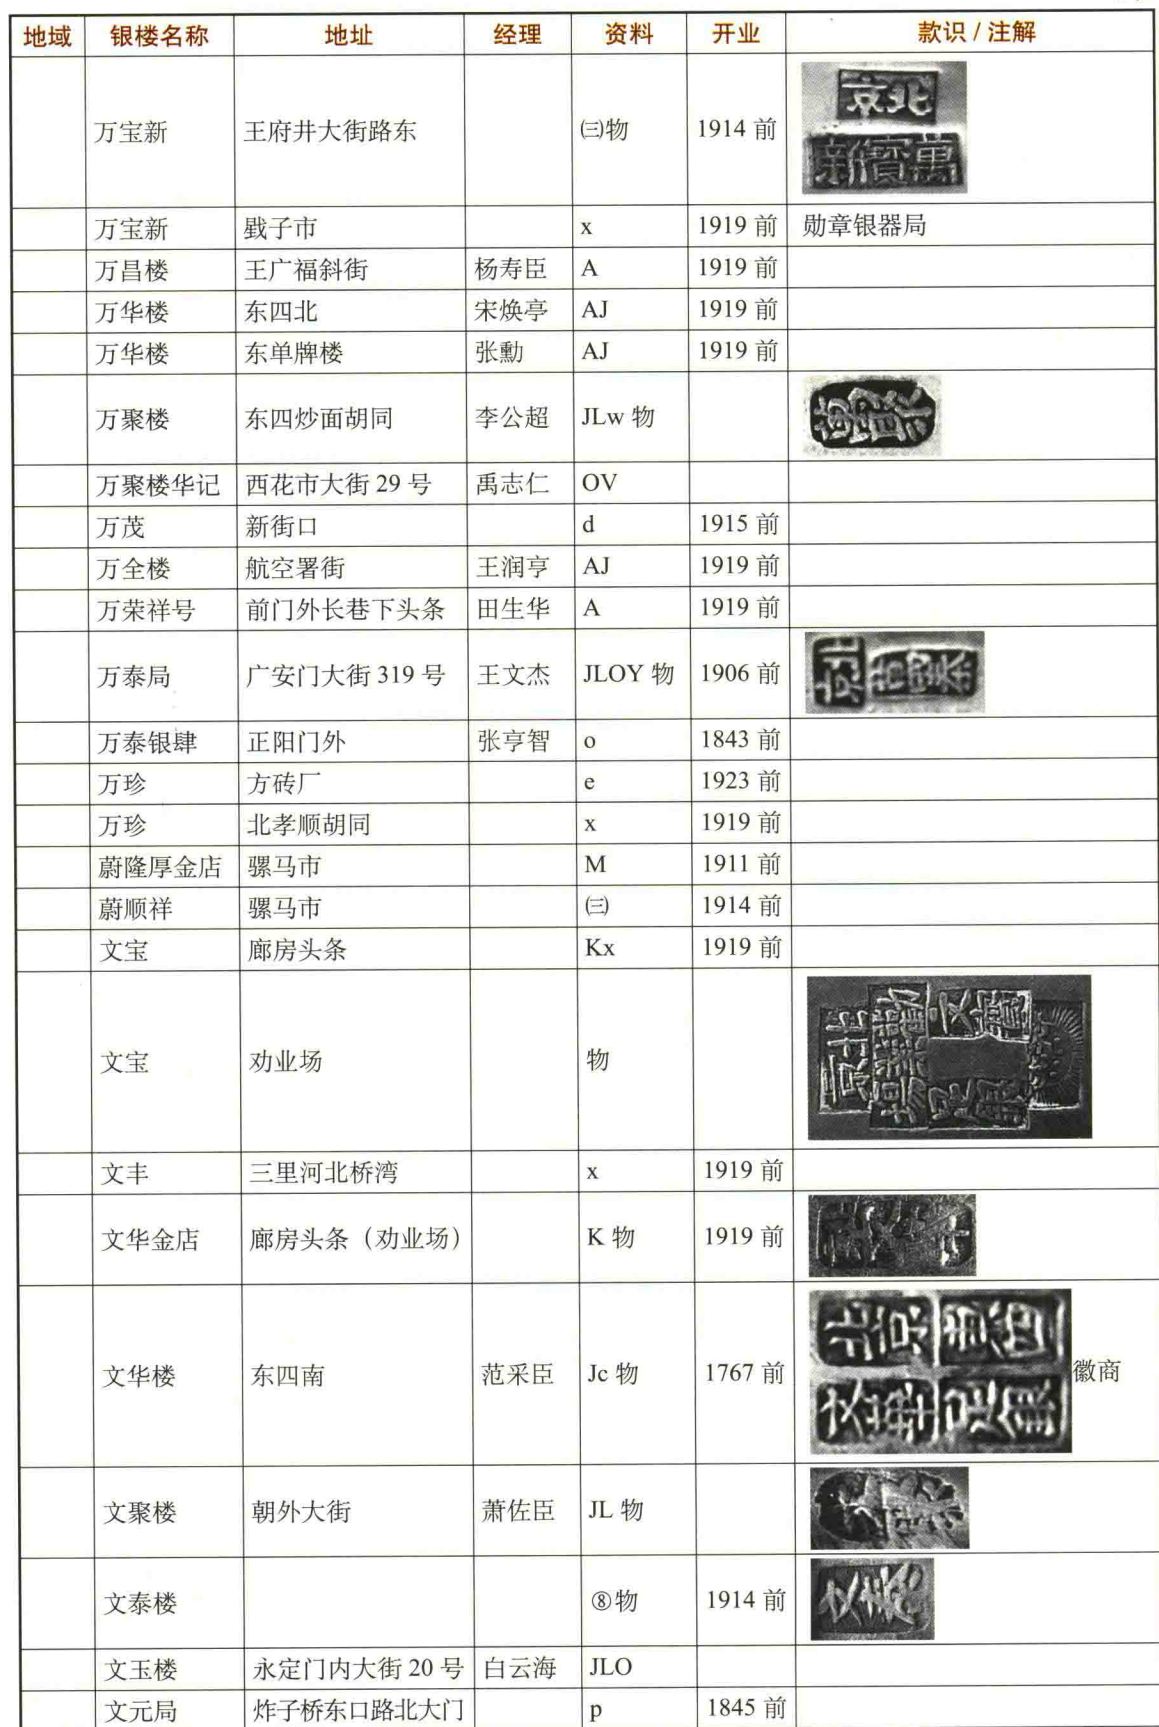 地域 银楼名称 地址 经理 资料 开业 款识 / 注解
万宝新 王府井大街路东 ㈢物 1914 前 京北 新寳萬
万宝新 戥子市 x 1919 前 勋章银器局
万昌楼 王广福斜街 杨寿臣 A 1919 前
万华楼 东四北 宋焕亭 AJ 1919 前
万华楼 东单牌楼 张勳 AJ 1919 前
万聚楼 东四炒面胡同 李公超 JLw 物
万聚楼华记 西花市大街 29 号 禹志仁 OV
万茂 新街口 d 1915 前
万全楼 航空署街 王润亨 AJ 1919 前
万荣祥号 前门外长巷下头条 田生华 A 1919 前
万泰局 广安门大街 319 号 王文杰 JLOY 物 1906 前 北京
万泰银肆 正阳门外 张亨智 o 1843 前
万珍 方砖厂 e 1923 前
万珍 北孝顺胡同 x 1919 前
蔚隆厚金店 骡马市 M 1911 前
蔚顺祥 骡马市 ㈢ 1914 前
文宝 廊房头条 Kx 1919 前
文宝 劝业场 物 北京 勸業場 文寶 足銀
文丰 三里河北桥湾 x 1919 前
文华金店 廊房头条（劝业场） K 物 1919 前
文华楼 东四南 范采臣 Jc 物 1767 前 北京 文華 足銀 徽商
文聚楼 朝外大街 萧佐臣 JL 物
文泰楼 ⑧物 1914 前
文玉楼 永定门内大街 20 号 白云海 JLO
文元局 炸子桥东口路北大门 p 1845 前